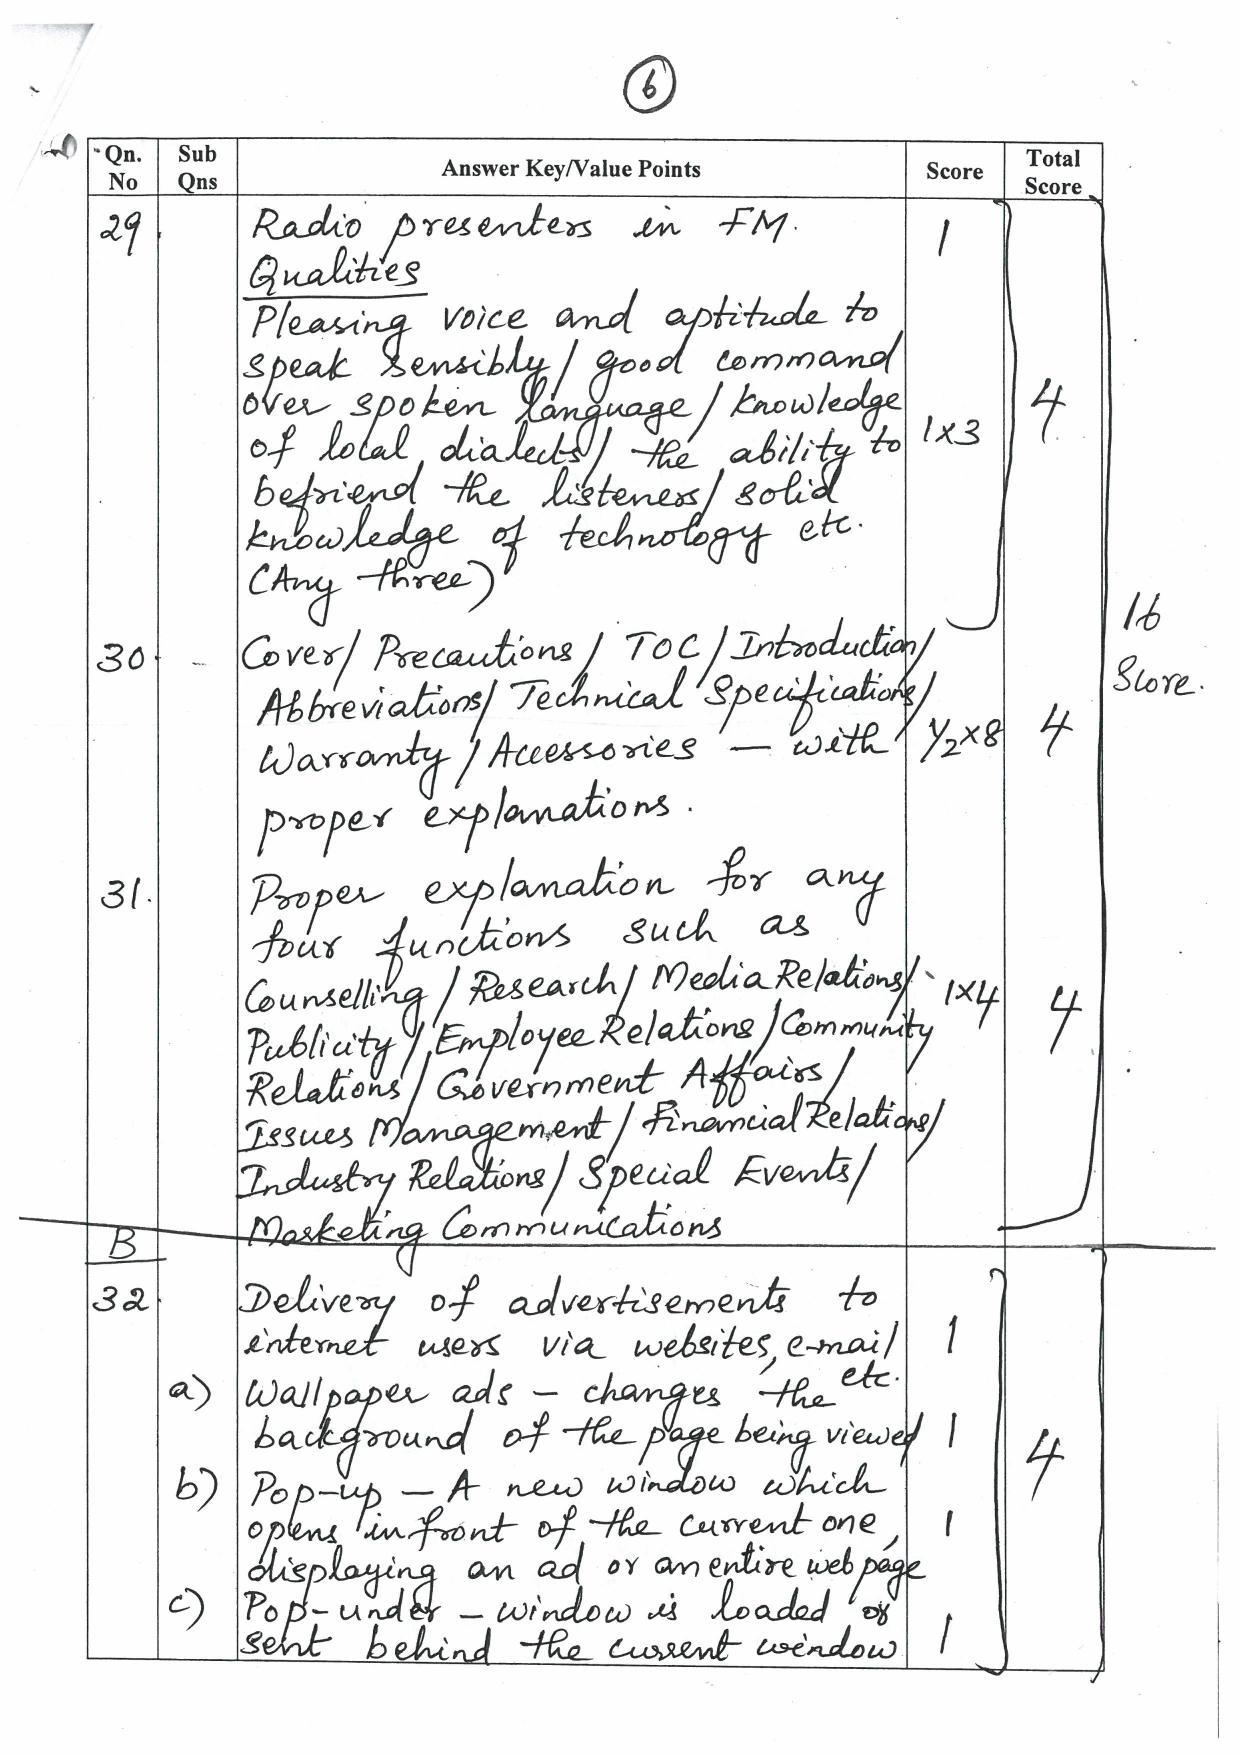 6
Qn. No
Sub Qns
Answer Key/Value Points
Score
Total Score
29
Radio presenters in FM. 1
Qualities
Pleasing voice and aptitude to
speak sensibly/ good command
over spoken language/ knowledge
of local dialects/ the ability to 1x3 4
befriend the listeners/ solid
knowledge of technology etc.
(Any three)
16
Score.
30 - Cover/ Precautions/ TOC/ Introduction/
Abbreviations/ Technical Specifications/
Warranty/ Accessories – with 1/2x8 4
proper explanations.
31. Proper explanation for any
four functions such as
Counselling/ Research/ Media Relations/ 1x4 4
Publicity/ Employee Relations/ Community
Relations/ Government Affairs/
Issues Management/ Financial Relations/
Industry Relations/ Special Events/
Marketing Communications
B
32 Delivery of advertisements to
internet users via websites, e-mail 1
etc.
a) Wallpaper ads – changes the
background of the page being viewed 1
4
b) Pop-up – A new window which
opens in front of the current one, 1
displaying an ad or an entire web page
c) Pop-under – window is loaded or
sent behind the current window 1